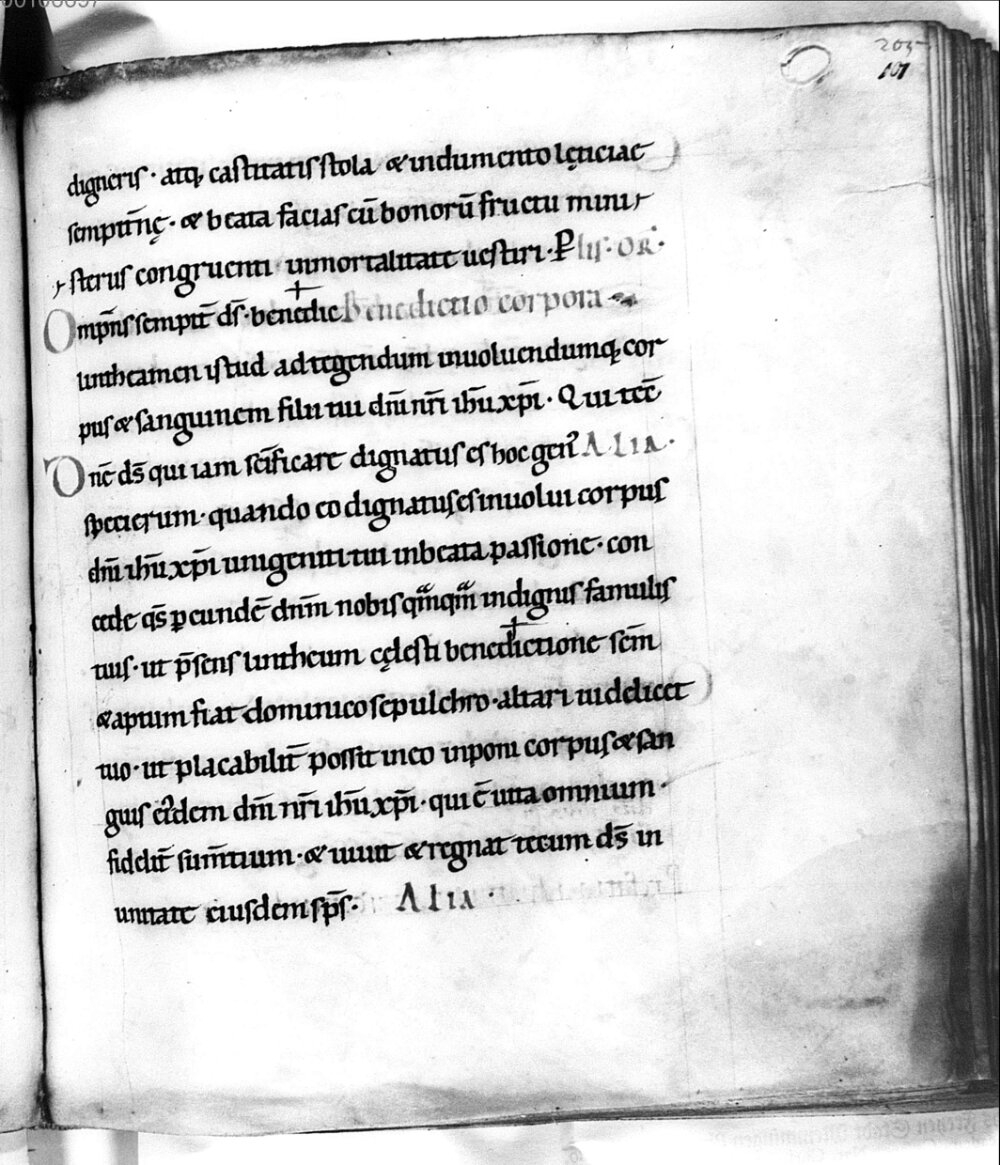 205
107
digneris · atq; castitatis stola & indumento lęticiae
sempit̄nę · & beata facias cū bonorū fructu mini
steriis congruenti inmortalitate uestiri · P lis · OR̄ ·
Omp̄ns sempit̄ ds̄ · benedic Benedictio corpora
lintheamen istud ad tegendum inuoluendumq; cor
pus & sanguinem filii tui dn̄i nr̄i ih̄u xp̄i · Qui tec̄
Dn̄e ds̄ qui iam sc̄ificare dignatus es hoc gen̄ ALIA ·
specierum · quando eo dignatus es inuolui corpus
dn̄i ih̄u xp̄i unigeniti tui in beata passione · con
cede qs̄ p eundē dn̄m nobis qm̄qm̄ indignis famulis
tuis · ut p̄sens lintheum cęlesti benedictione sc̄m
& aptum fiat dominico sepulchro · altari uidelicet
tuo · ut placabilit̄ possit in eo inponi corpus & san
guis ei'dem dn̄i nr̄i ih̄u xp̄i · qui ē uita omnium ·
fidelit̄ sum̄tium · & uiuit & regnat tecum ds̄ in
unitate eiusdem sp̄s · ALIA ·